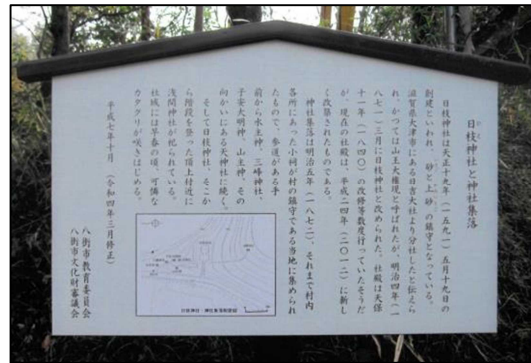 日枝神社と神社集落
日枝神社は天正十九年(一五九一)五月十九日の
創建といわれ、砂と上砂の鎮守となっている。
滋賀県大津市にある日吉大社より分社したと伝えら
れ、かつては山王大権現と呼ばれたが、明治四年(一
八七一)三月に日枝神社と改められた。社殿は天保
十一年(一八四〇)の改修等数度行っていたそうだ
が、現在の社殿は、平成二四年(二〇一二)に新し
く改築されたものである。
神社集落は明治五年(一八七二)、それまで村内
各所にあった小祠が村の鎮守である当地に集められ
たもので、参道がある手
前から水主神、三峰神社、
子安大明神、山主神、その
向かいにある天神社に続く。
そして日枝神社、そこか
ら階段を登った頂上付近に
浅間神社が祀られている。
社域には早春の頃、可憐な
カタクリが咲きはじめる。
平成七年十月(令和四年三月修正)
八街市教育委員会
八街市文化財審議会